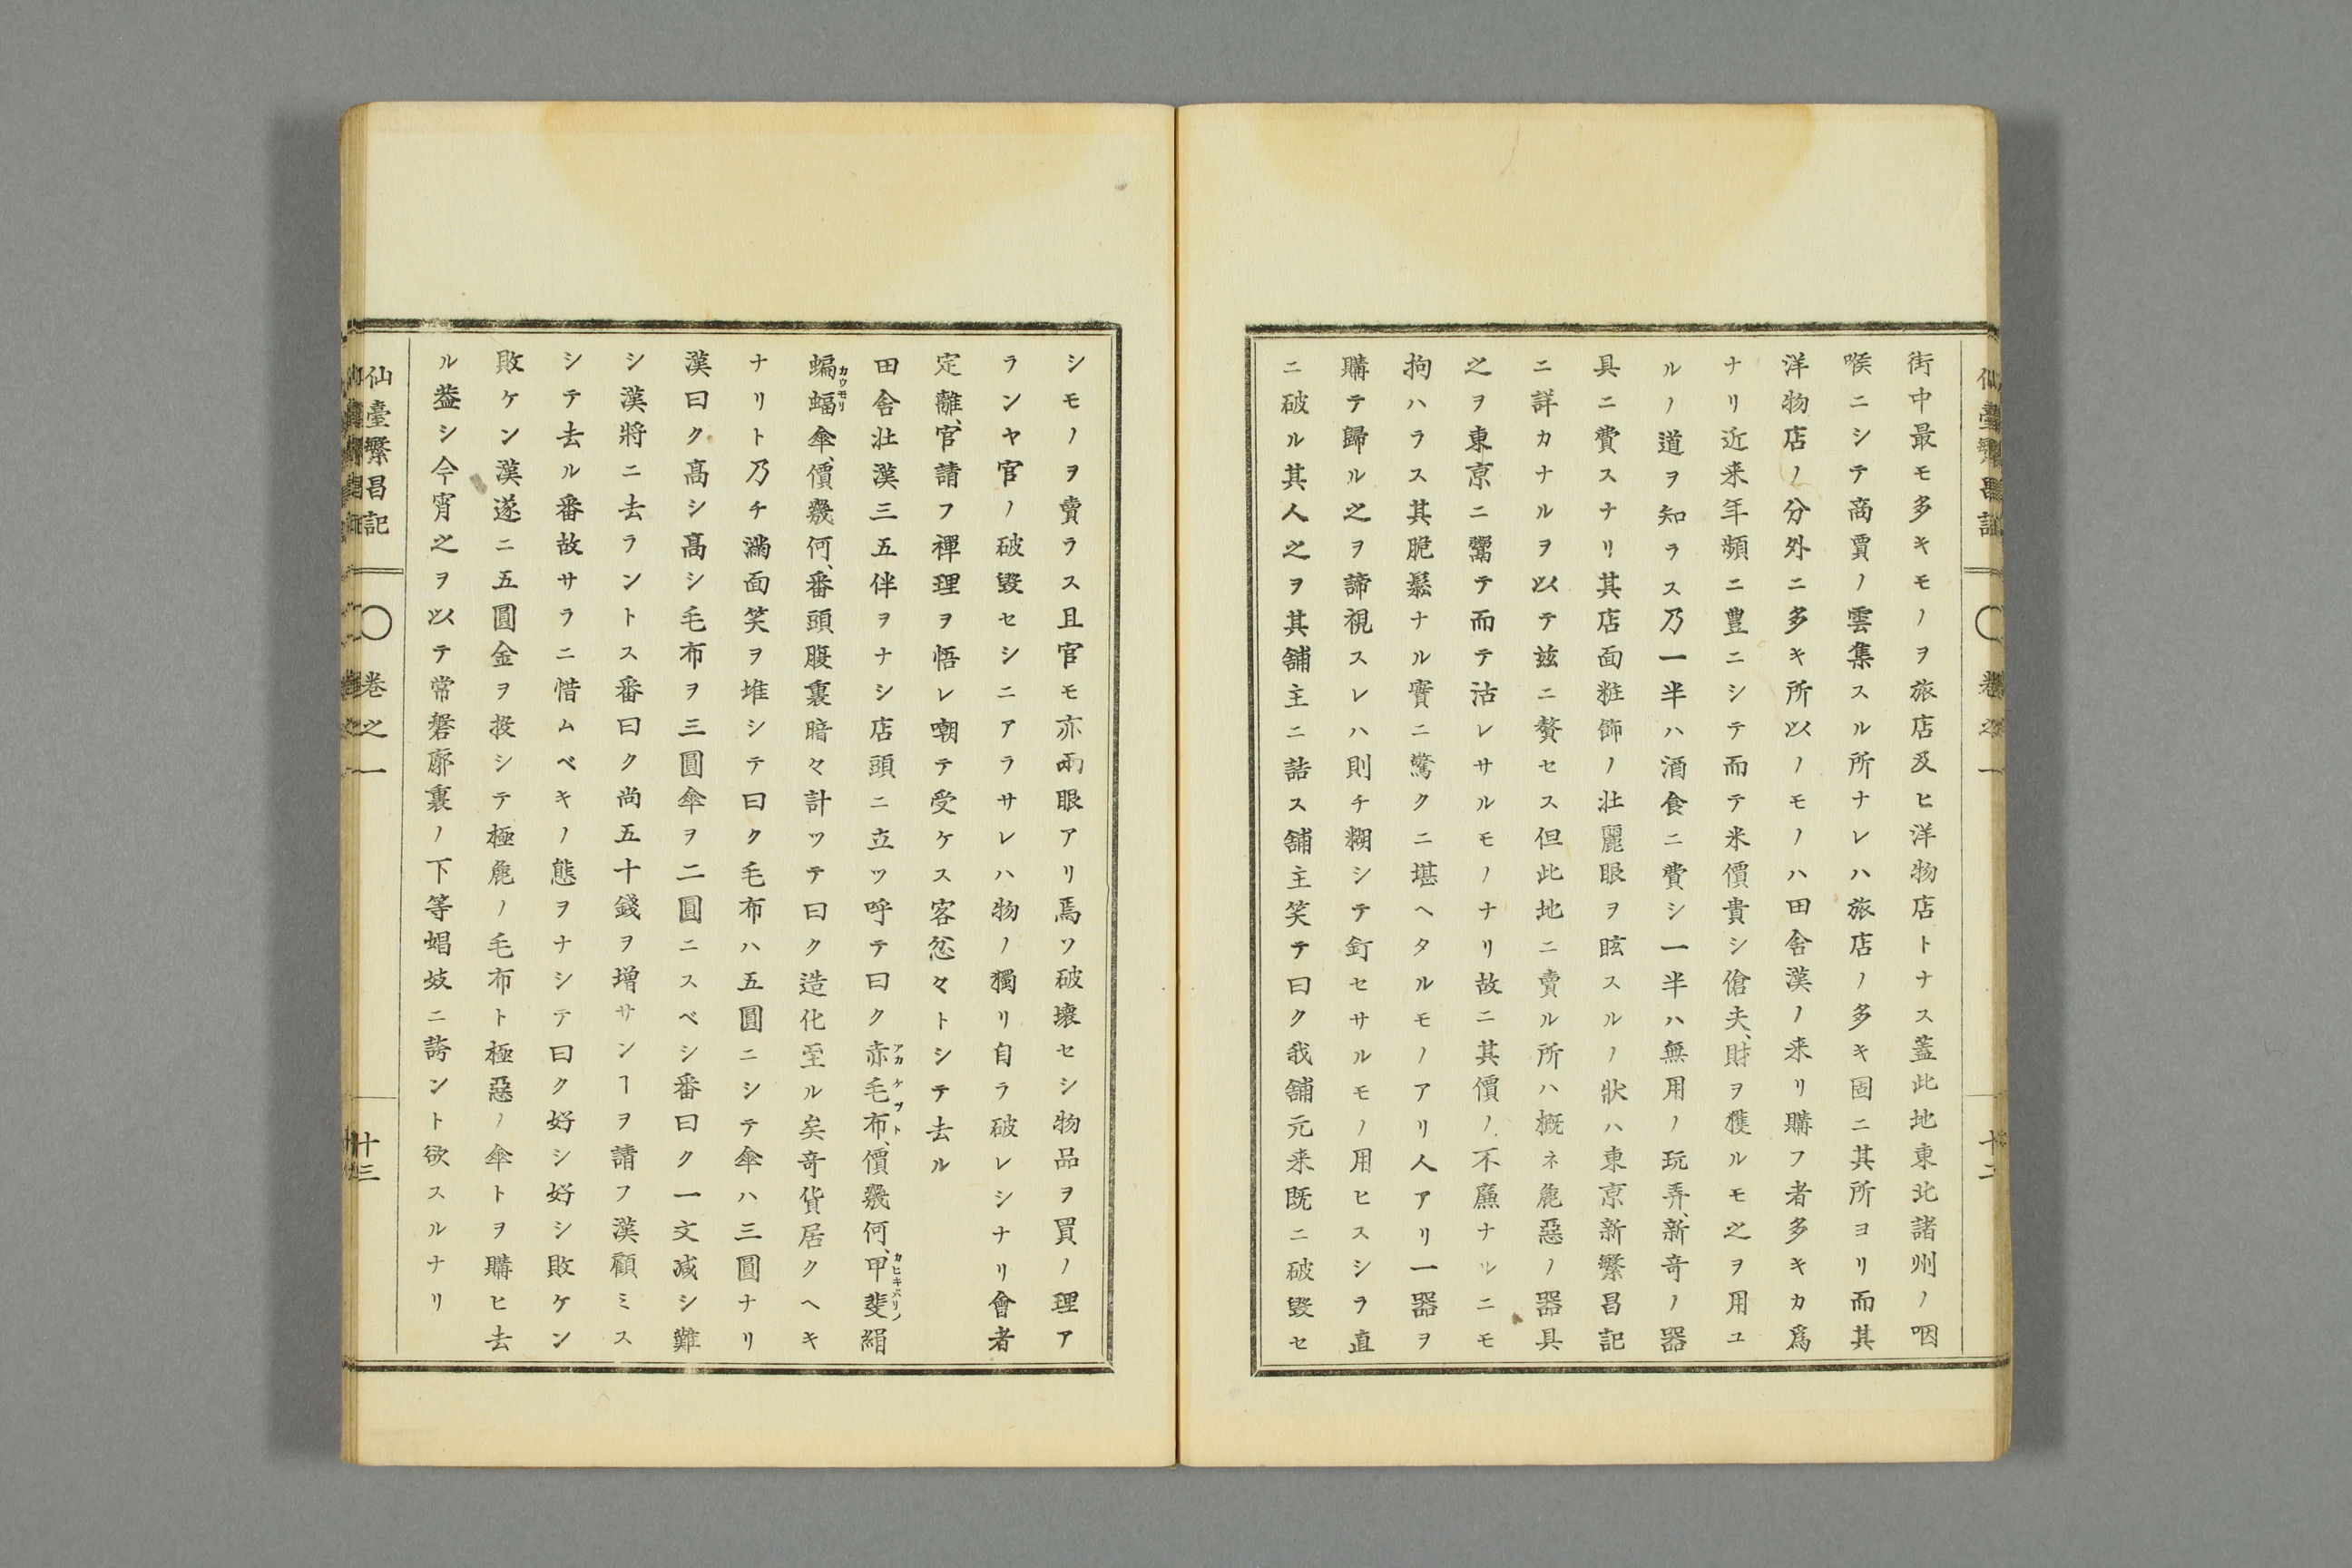 街中最モ多キモノヲ旅店及ヒ洋物店トナス蓋此地東北諸州ノ咽
喉ニシテ商賈ノ雲集スル所ナレハ旅店ノ多キ固ニ其所ヨリ而其
洋物店ノ分外ニ多キ所以ノモノハ田舍漢ノ来リ購フ者多キカ爲
ナリ近来年頻ニ豊ニシテ而テ米價貴シ傖夫、財ヲ獲ルモ之ヲ用ユ
ルノ道ヲ知ラス乃一半ハ酒食ニ費シ一半ハ無用ノ玩弄、新奇ノ器
具ニ費スナリ其店面粧飾ノ壮麗眼ヲ眩スルノ狀ハ東京新繁昌記
ニ詳カナルヲ以テ玆ニ贅セス但此地ニ賣ル所ハ概ネ麁惡ノ器具
之ヲ東京ニ鬻テ而テ沽レサルモノナリ故ニ其價ノ不廉ナルニモ
拘ハラス其脆鬆ナル實ニ驚クニ堪ヘタルモノアリ人アリ一器ヲ
購テ歸ル之ヲ諦視スレハ則チ糊シテ釘セサルモノ用ヒスシラ直
ニ破ル其人之ヲ其舖主ニ詰ス舖主笑テ曰ク我舖元来既ニ破毀セ
仙臺繁昌記 〇 卷之一 十二
シモノヲ賣ラス且官モ亦兩眼アリ焉ソ破壞セシ物品ヲ買ノ理ア
ランヤ官ノ破毀セシニアラサレハ物ノ獨リ自ラ破レシナリ會者
定離、官請フ禪理ヲ悟レ嘲テ受ケス客忿々トシテ去ル
田舍壮漢三五伴ヲナシ店頭ニ立ツ呼テ曰ク赤毛布、價幾何、甲斐絹
蝙蝠傘、價幾何、番頭腹裏暗々計ツテ曰ク造化至ル矣奇貨居クヘキ
ナリト乃チ滿面笑ヲ堆シテ曰ク毛布ハ五圓ニシテ傘ハ三圓ナリ
漢曰ク髙シ髙シ毛布ヲ三圓傘ヲ二圓ニスベシ番曰ク一文减シ難
シ漢將ニ去ラントス番曰ク尚五十錢ヲ增サンヿヲ請フ漢顧ミス
シテ去ル番故サラニ惜ムベキノ態ヲナシテ曰ク好シ好シ敗ケン
敗ケン漢遂ニ五圓金ヲ投シテ極麁ノ毛布ト極惡ノ傘トヲ購ヒ去
ル葢シ今宵之ヲ以テ常磐廓裏ノ下等娼妓ニ誇ント欲スルナリ
仙臺繁昌記 〇 卷之一 十三